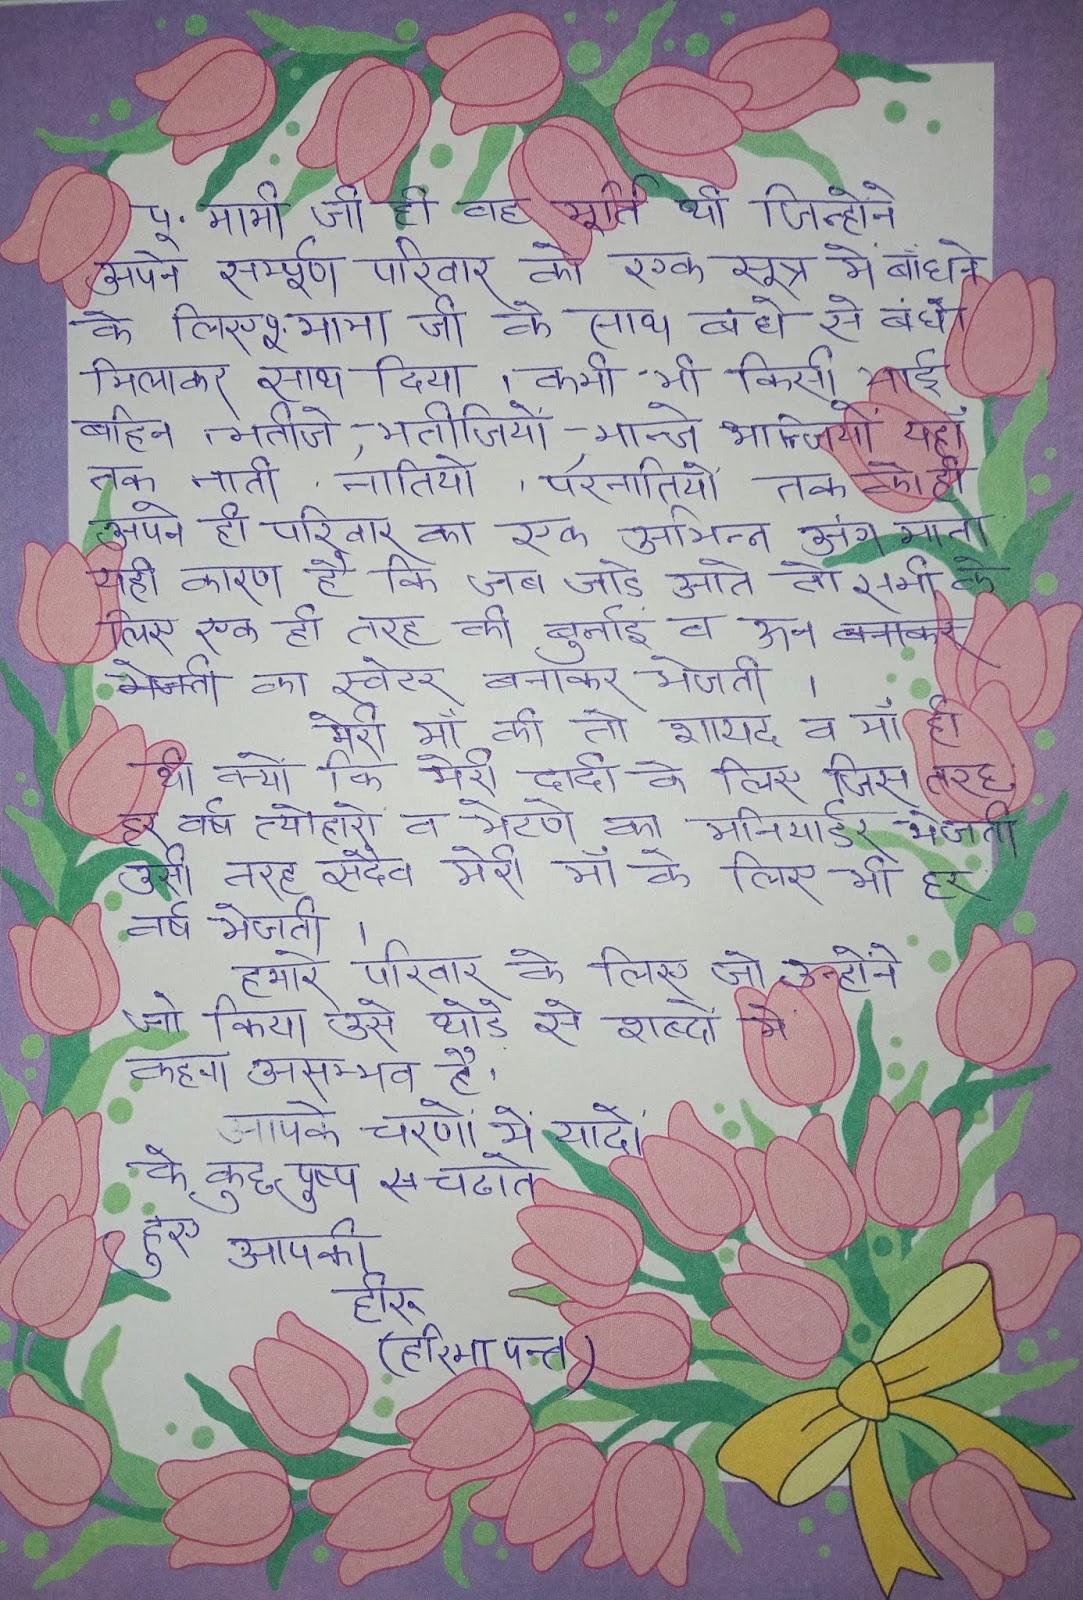 पू. मामी जी ही वह मूर्ति थी जिन्होंने
अपने सम्पूर्ण परिवार को एक सूत्र में बाँधने
के लिए पू. मामा जी के साथ कंधे से कंधा
मिलाकर साथ दिया । कभी भी किसी भाई
बहिन, भतीजे, भतीजियों, भान्जे भान्जियों यहाँ
तक नाती, नातियो, परनातियों तक को ही
अपने ही परिवार का एक अभिन्न अंग माना
यही कारण है कि जब जाडे आते तो सभी के
लिए एक ही तरह की बुनाई व ऊन बनाकर
भेजती का स्वेटर बनाकर भेजती ।
मेरी माँ की तो शायद व माँ ही
थी क्यों कि मेरी दादी के लिए जिस तरह
हर वर्ष त्योहारो व भेटणे का मनिआर्डर भेजती
उसी तरह सदैव मेरी माँ के लिए भी हर
वर्ष भेजती ।
हमारे परिवार के लिए जो उन्होंने
जो किया उसे थोडे से शब्दों में
कहना असम्भव है।
आपके चरणों में यादों
के कुछ पुष्प चढाते
हुए आपकी
हीरू
(हरिमा पन्त)